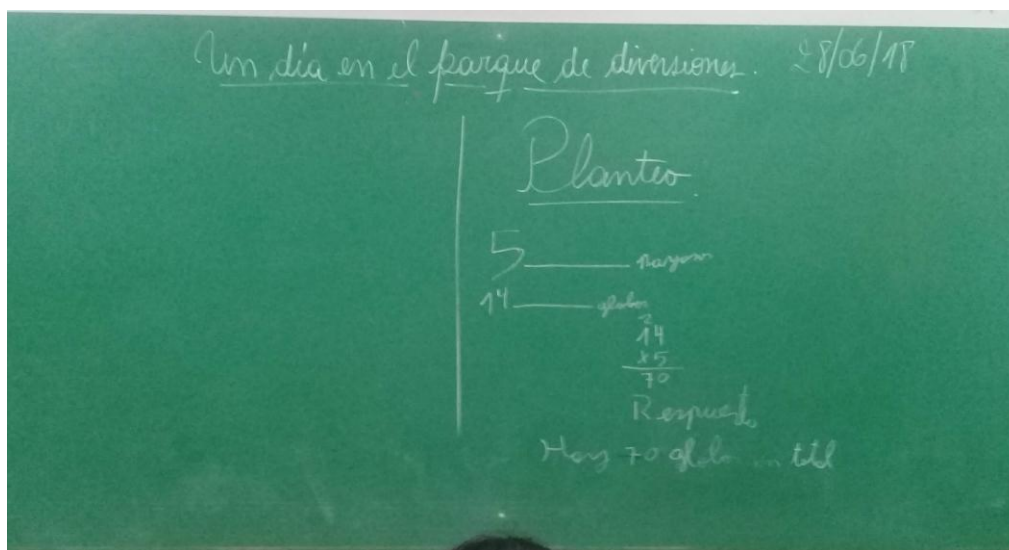 Un día en el parque de diversiones. 28/06/18
Planteo
5
14 globos
2
14
x5
70
Respuesta
Hay 70 globos en total